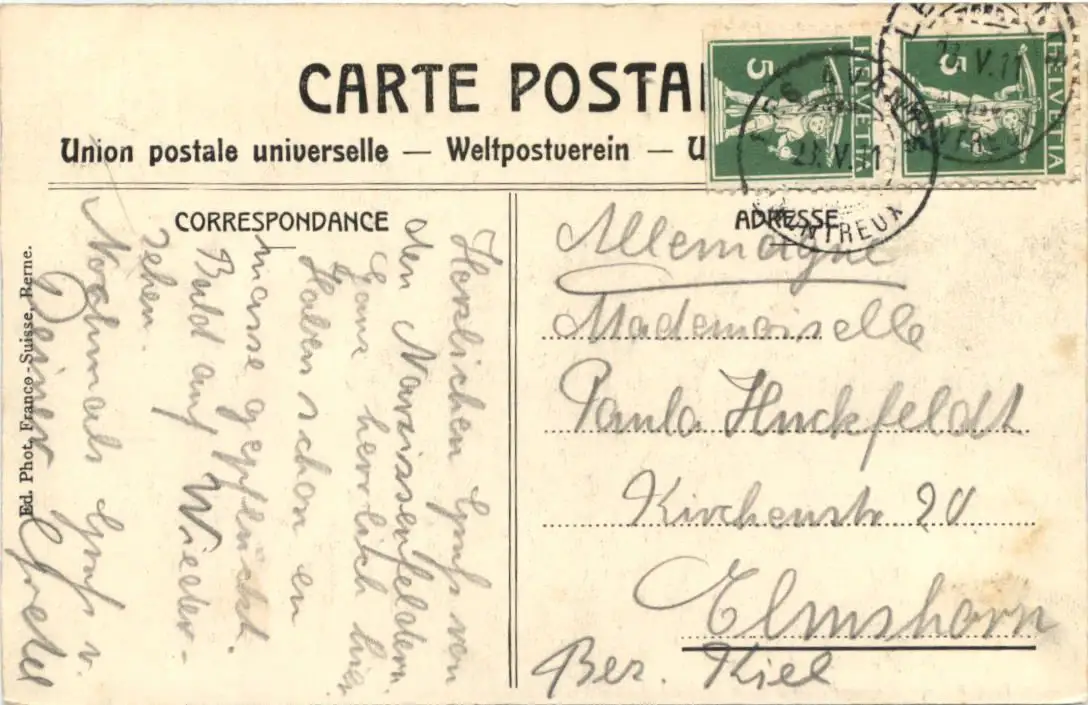 CARTE POSTA
Union postale universelle — Weltpostverein — U
CORRESPONDANCE
Herzlichen Gruß von
den Narzissenfeldern.
Ganz herrlich hier.
Haben schon en
masse gepflückt.
Bald auf Wieder-
sehen.
Nochmals Gruß v.
Deiner Gretel
Ed. Phot, Franco-Suisse, Berne.
5 HELVETIA
5 HELVETIA
LES AVANTS
23.V.11
MONTREUX
23.V.11
ADRESSE
Allemagne
Mademoiselle
Paula Huckfeldt
Kirchenstr 20
Elmshorn
Bez. Kiel